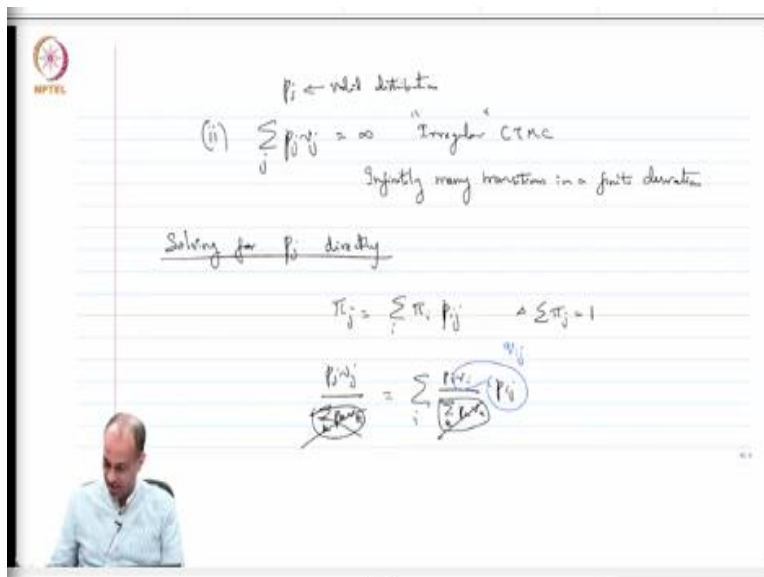 NPTEL
p_j ← valid distribution
(ii) ∑_j p_j ν_j = ∞ "Irregular" CTMC
Infinitely many transitions in a finite duration
Solving for p_j directly
π_j = ∑_i π_i P_ij & ∑π_j = 1
q_ij
p_j ν_j / ∑_k p_k ν_k = ∑_i p_i ν_i / ∑_k p_k ν_k P_ij